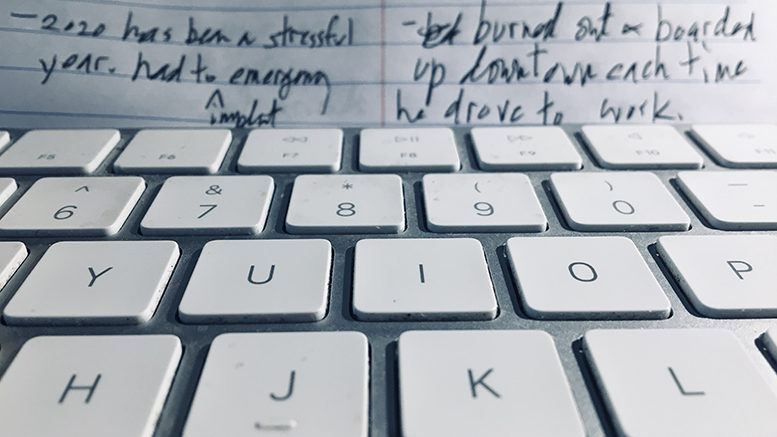 -2020 has been a stressful
year. had to emergency
^
implant
- burned out & boarded
up downtown each time
he drove to work.
F5 F6 F7 F8 F9 F10
^ & * ( )
6 7 8 9 0 -
Y U I O P
H J K L